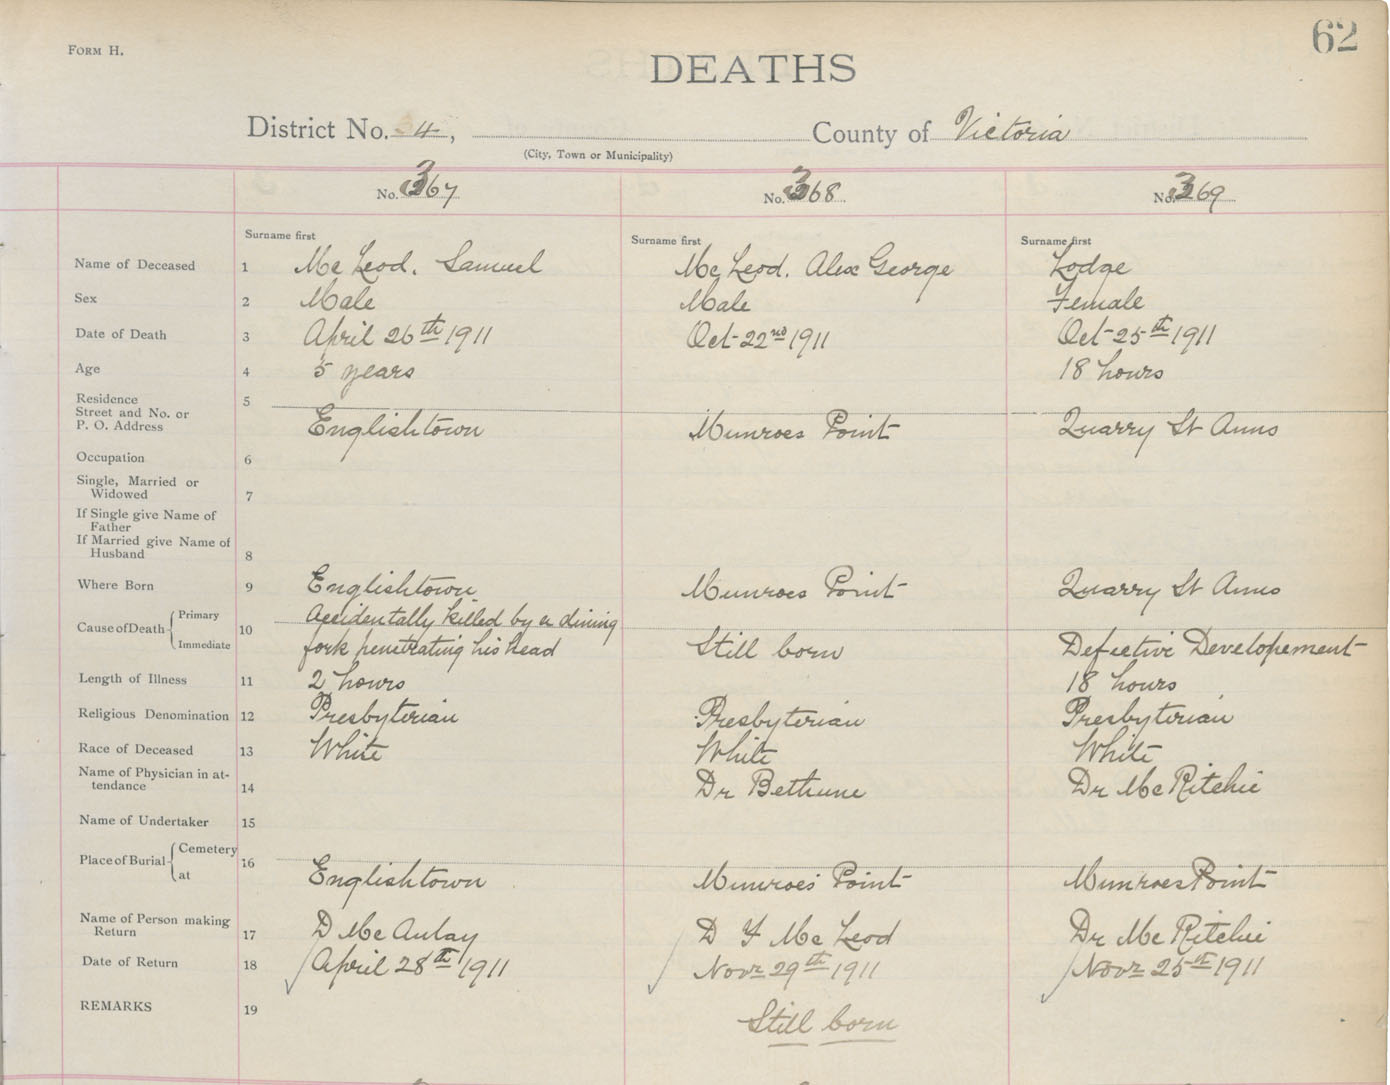 62
FORM H.
DEATHS
District No. 4, County of Victoria
(City, Town or Municipality)
No. 367 No. 368 No. 369
Surname first Surname first Surname first
Name of Deceased 1 Mc Leod. Samuel Mc Leod. Alex George Lodge
Sex 2 Male Male Female
Date of Death 3 April 26th 1911 Oct-22nd 1911 Oct-25th 1911
Age 4 5 years 18 hours
Residence 5
Street and No. or
P. O. Address Englishtown Munroes Point Quarry St Anns
Occupation 6
Single, Married or
Widowed 7
If Single give Name of
Father
If Married give Name of
Husband 8
Where Born 9 Englishtown Munroes Point Quarry St Anns
Cause of Death Primary 10 Accidentally killed by a dining
Immediate fork penetrating his head Still born Defective Developement
Length of Illness 11 2 hours 18 hours
Religious Denomination 12 Presbyterian Presbyterian Presbyterian
Race of Deceased 13 White White White
Name of Physician in at-
tendance 14 Dr Bethune Dr Mc Ritchie
Name of Undertaker 15
Place of Burial Cemetery 16
at Englishtown Munroes Point Munroes Point
Name of Person making
Return 17 D Mc Aulay D Y Mc Leod Dr Mc Ritchie
Date of Return 18 April 28th 1911 Novr 29th 1911 Novr 25th 1911
REMARKS 19 Still born